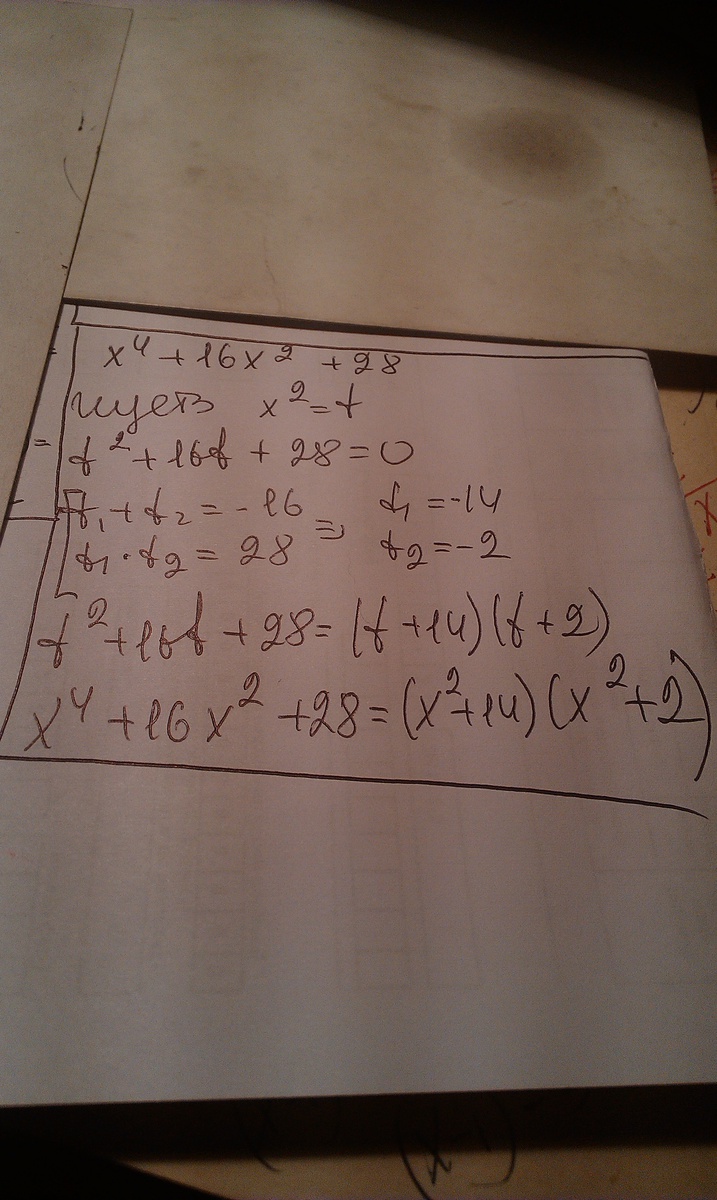 x⁴ + 16x² + 28
пусть x² = t
t² + 16t + 28 = 0
t₁ + t₂ = -16 ⇒ t₁ = -14
t₁ · t₂ = 28 t₂ = -2
t² + 16t + 28 = (t + 14)(t + 2)
x⁴ + 16x² + 28 = (x² + 14)(x² + 2)